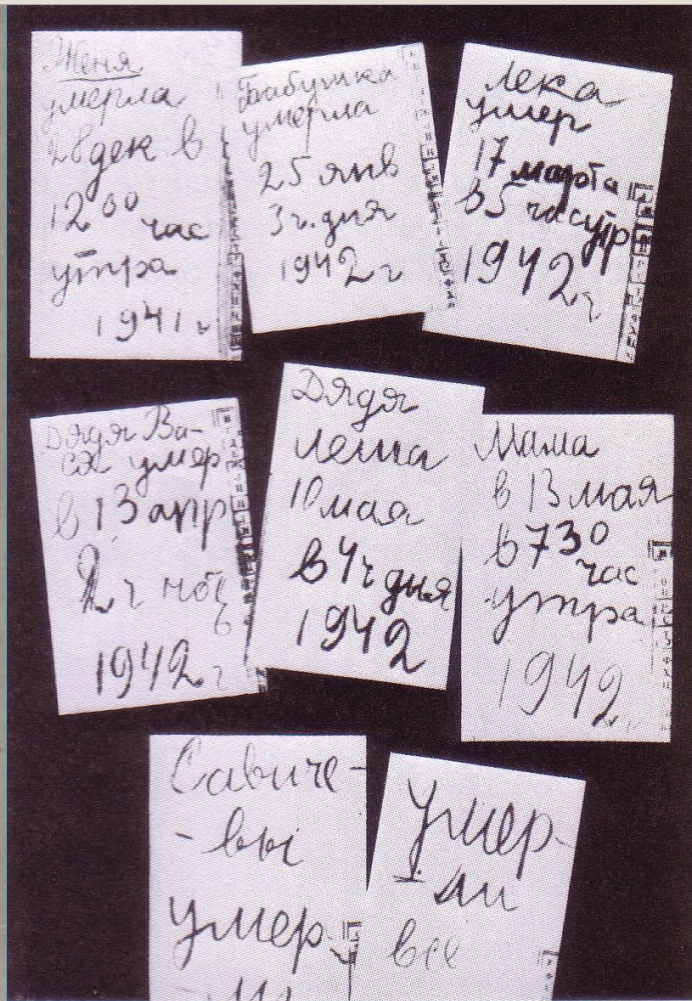 Женя
умерла
28 дек в
12 00 час
утра
1941 г
Бабушка
умерла
25 янв
3 ч. дня
1942 г
Лека
умер
17 марта
в 5 час утр
1942 г
Дядя Ва-
ся умер
в 13 апр
2 ч ноч
1942 г
Дядя
Леша
10 мая
в 4 ч дня
1942
Мама
в 13 мая
в 7 30
час
утра
1942
Савиче-
-вы
умер-
Умер-
-ли
все